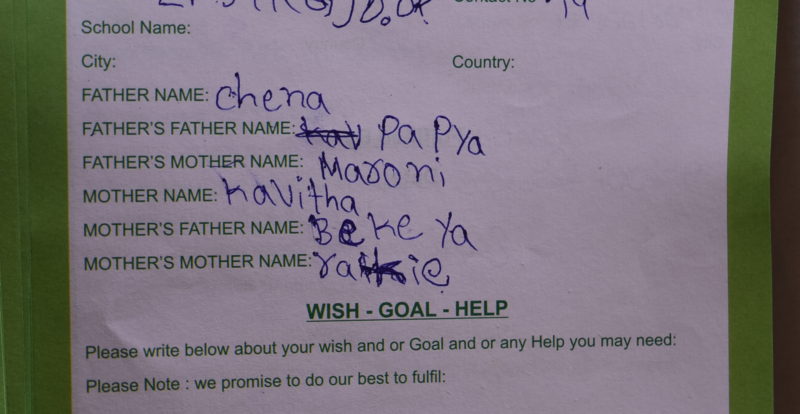 School Name:
City: Country:
FATHER NAME: Chena
FATHER'S FATHER NAME: PaPYa
FATHER'S MOTHER NAME: Maroni
MOTHER NAME: Kavitha
MOTHER'S FATHER NAME: BeKeYa
MOTHER'S MOTHER NAME:
WISH - GOAL - HELP
Please write below about your wish and or Goal and or any Help you may need:
Please Note : we promise to do our best to fulfil: